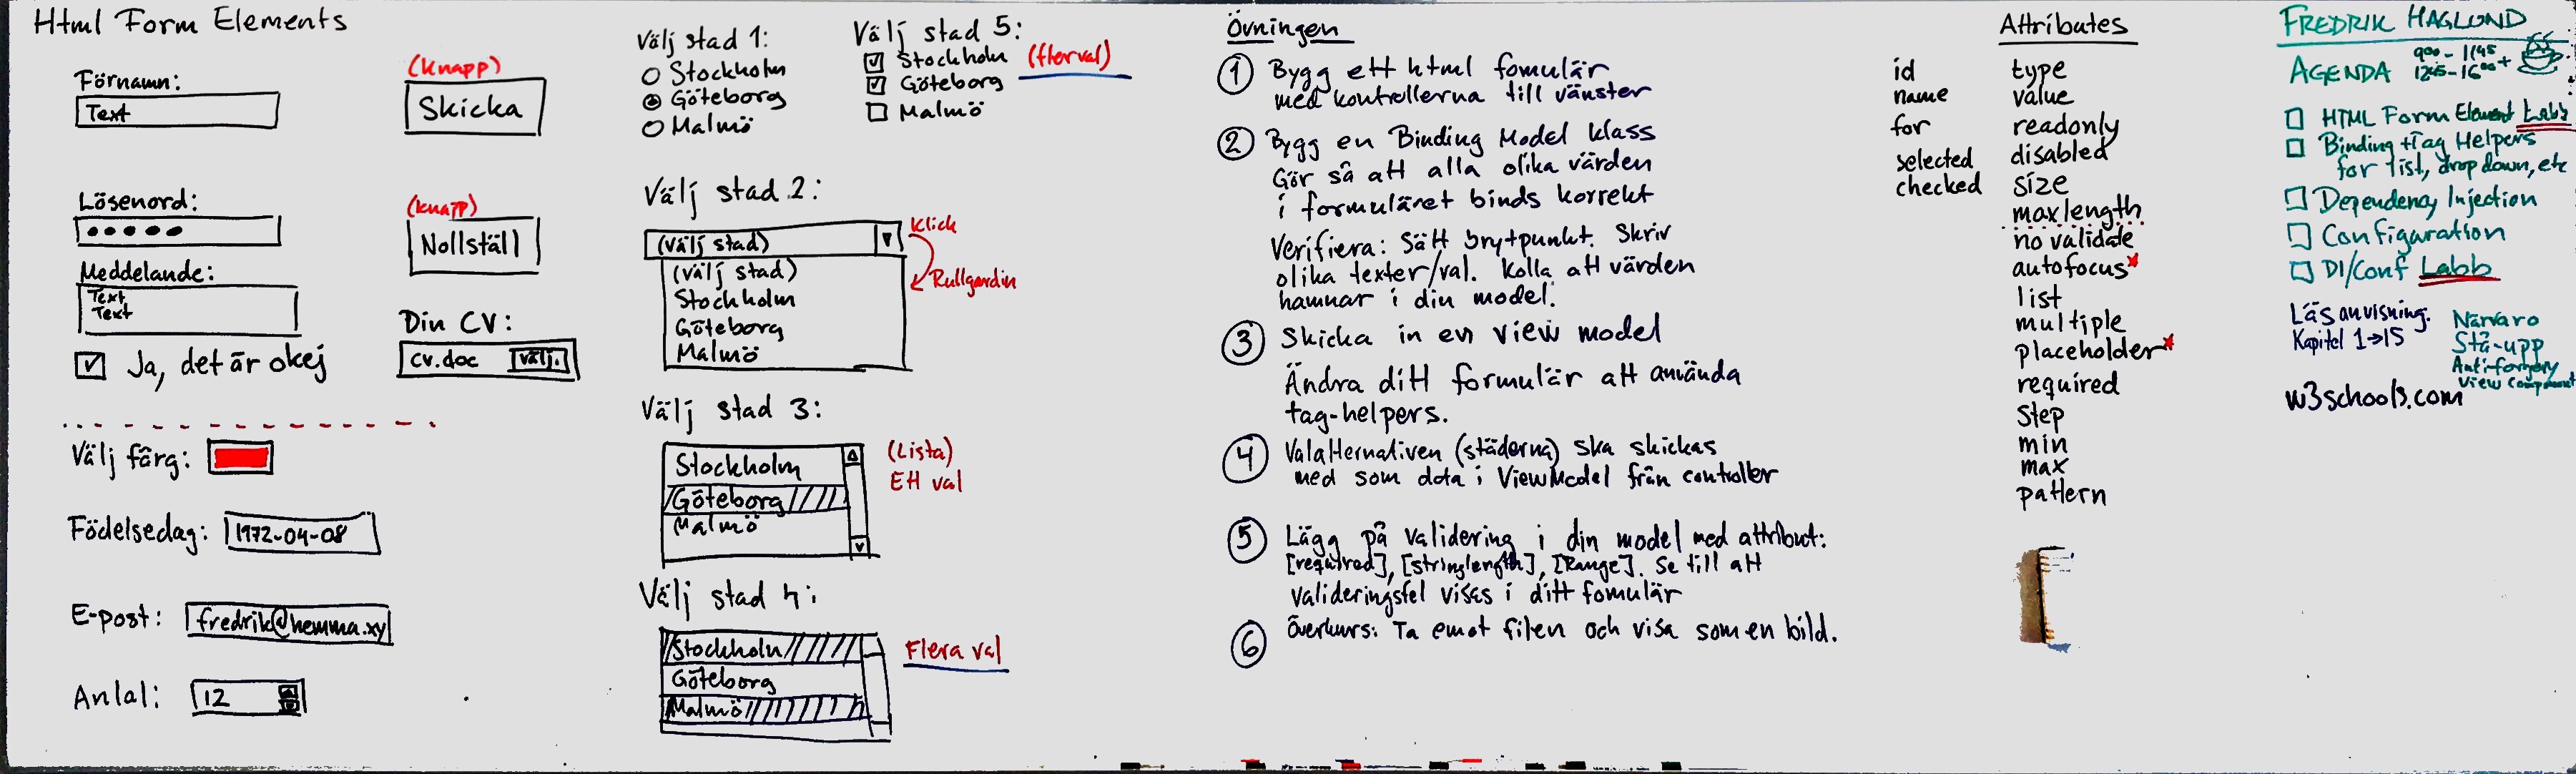 Html Form Elements
Förnamn:
Text
(knapp)
Skicka
Lösenord:
(knapp)
Nollställ
Meddelande:
Text
Text
Din CV:
cv.doc välj.
Ja, det är okej
Välj färg:
Födelsedag: 1972-04-08
E-post: fredrik@hemma.xy
Antal: 12
Välj stad 1:
Stockholm
Göteborg
Malmö
Välj stad 5:
Stockholm (flerval)
Göteborg
Malmö
Välj stad 2:
(välj stad)
Klick
Rullgardin
(välj stad)
Stockholm
Göteborg
Malmö
Välj stad 3:
Stockholm
Göteborg
Malmö
(Lista)
Ett val
Välj stad 4:
Stockholm
Göteborg
Malmö
Flera val
Övningen
1 Bygg ett html fomulär
med kontrollerna till vänster
2 Bygg en Binding Model klass
Gör så att alla olika värden
i formuläret binds korrekt
Verifiera: Sätt brytpunkt. Skriv
olika texter/val. Kolla att värden
hamnar i din model.
3 Skicka in en view model
Ändra ditt formulär att använda
tag-helpers.
4 Valalternativen (städerna) ska skickas
med som data i ViewModel från controller
5 Lägg på validering i din model med attribut:
[required], [stringlength], [Range]. Se till att
valideringsfel visas i ditt fomulär
6 Överkurs: Ta emot filen och visa som en bild.
Attributes
id
name
for
selected
checked
type
value
readonly
disabled
size
maxlength
novalidate
autofocus*
list
multiple
placeholder*
required
step
min
max
pattern
FREDRIK HAGLUND
AGENDA
9⁰⁰ - 11⁴⁵
12⁴⁵ - 16⁰⁰ +
HTML Form Element Labb
Binding + Tag Helpers
for list, drop down, etc
Dependency Injection
Configuration
DI/Conf Labb
Läsanvisning.
Kapitel 1→15
Närvaro
Stå-upp
Anti-forgery
View Component
w3schools.com